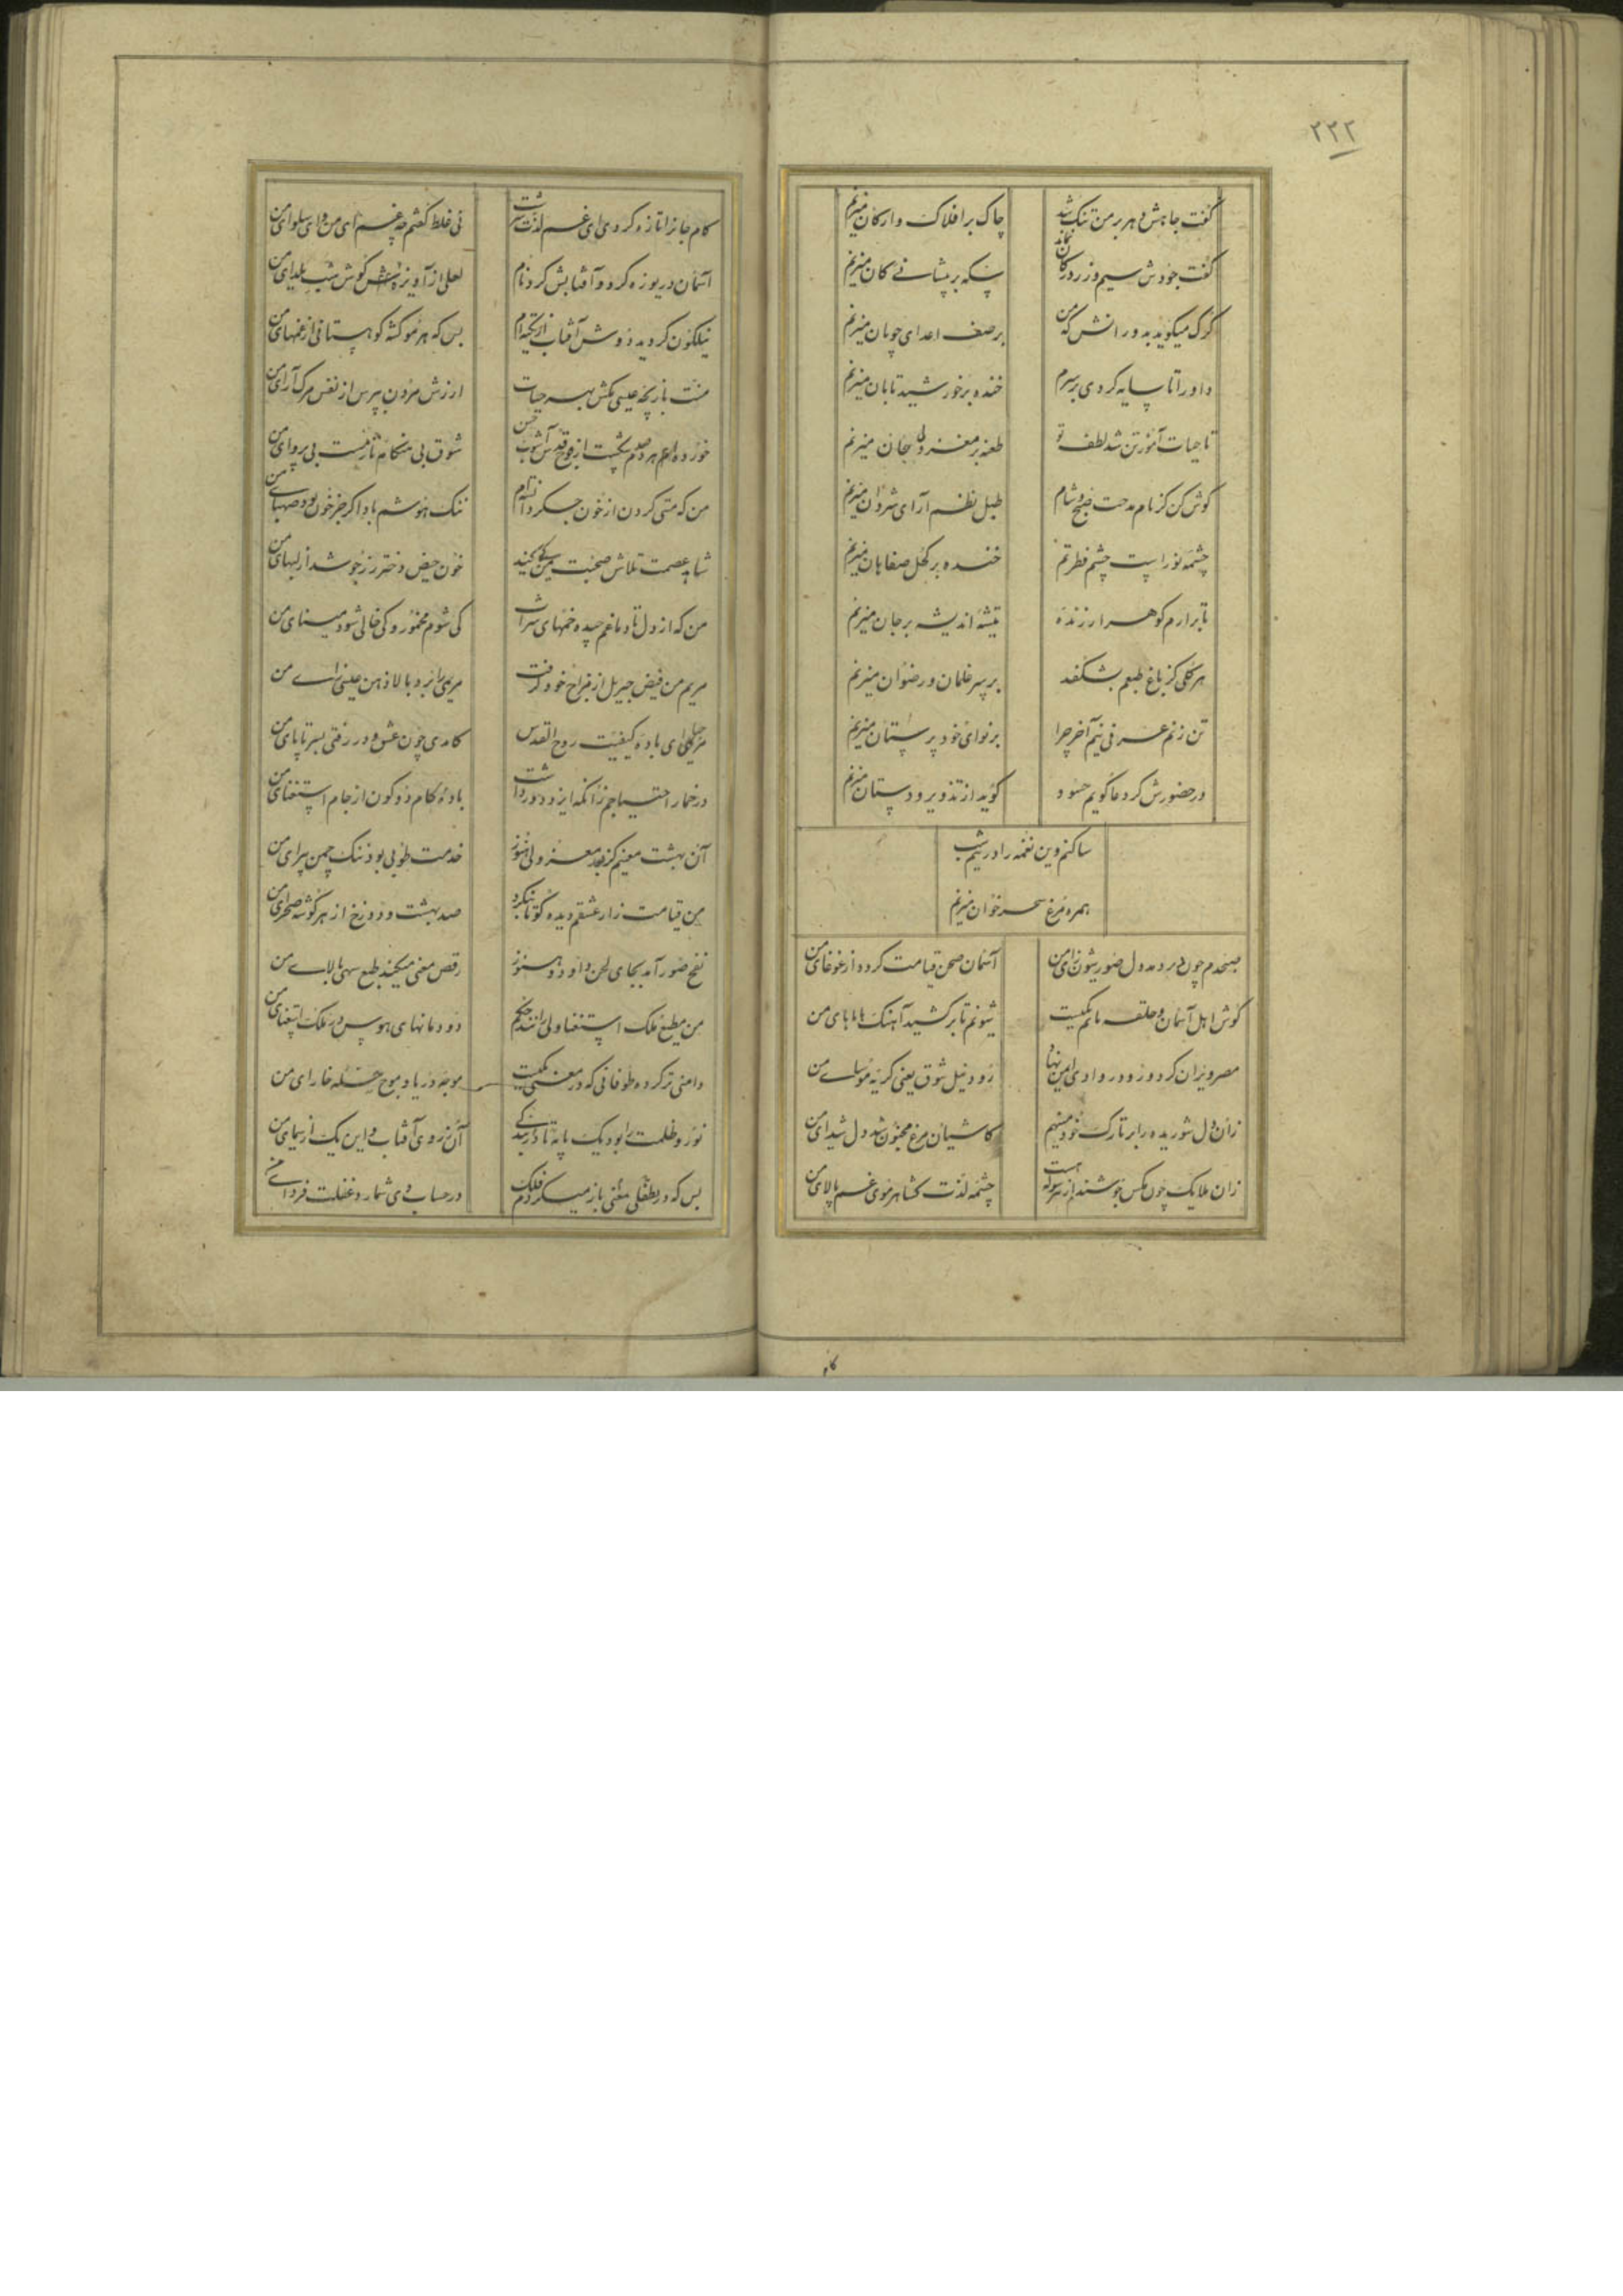 ۲۲۲
گفت جاهش دهر بر من تنک شد چاک بر افلاک و ارکان میزنم
گفت جودش سیم و زر در کان نماند سکه بر پیشانی کان میزنم
کرک میکوید بدورانش که من بر صف اعدای چوپان میزنم
داورا تا سایه کردی بر سرم خنده بر خورشید تابان میزنم
تا حیات آموز تن شد لطف تو طعنه بر معزولی جان میزنم
کوش کن کز نام مدحت صبح و شام طبل نظم آرای شروان میزنم
چشمه نور است چشم فطرتم خنده بر کحل صفاهان میزنم
تا برارم کوهر ارزنده تیشه اندیشه بر جان میزنم
هر کلی کز باغ طبعم بشکفد بر سر غلمان و رضوان میزنم
تن زنم عرفی نیم آخر چرا بر نوای خود پرستان میزنم
در حضورش کر دعا کویم حسود کوید از تذویر و دستان میزنم
ساکنم وین نغمه را در نیم شب
همره مرغ سحر خوان میزنم
صبحدم چون در دمد دل صور شیون زای من آسمان صحن قیامت کردد از غوغای من
کوش اهل آسمان و حلقه ماتم یکیست شیونم تا برکشید آهنک هایاهای من
مصر ویران کردد و زود در وادی ایمن نهاد رود نیل شوق یعنی کریه موسای من
زان دل شوریده را بر تارک خود مینهم کاشیان مرغ مجنون شد دل شیدای من
زان ملایک چون مکس جوشند از هر سو که هست چشمه لذت کشا هر موی غم پالای من
کام
کام جانرا تازه کردی ای غم لذت سرشت نی غلط کفتم چه غم ای من و ای سلوای من
آسمان دریوزه کرد و آفتابش کرد نام لعلی از آویزه کوش شب یلدای من
نیلکون کردید دوش آفتاب از تکیه ام بس که هر مو کشته کوهستانی از غمهای من
منت بازیچه عیسی مکش بهر حیات ارزش مردن بپرس از نفس مرک آرای من
خورده ام هر دم شکست از فوج قدس آشوب حسن شوق بی هنکامه تاز مست بی پروای من
من که مستی کردن از خون جکر دانسته ام ننک هوشم باد اکر جز خون بود صهبای من
شاهد عصمت تلاش صحبت من کی کند خون حیض دختر رز جوشد از لبهای من
من که از دل تا دماغم چیده خمهای شراب کی شوم مخمور و کی خالی شود مینای من
مریم من فیض جبریل از مزاج خود کرفت مریمی را برد بالا ذهن عیسی زای من
مرحبا ای باده کیفیت روح القدس کامدی چون عشق و در رفتی بسر تا پای من
در خمار احتیاجم زانکه ایزد دور داشت باده کام دو کون از جام استغنای من
آن بهشت معنیم کز بعد معزولی هنوز خدمت طوبی بود ننک چمن پیرای من
من قیامت زار عشقم دیده کو تا بنکرد صد بهشت و دوزخ از هر کوشه صحرای من
نفخ صور آمد بجای لحن داود و هنوز رقص معنی میکند طبع سهی بالای من
من مطیع ملک استغنا ولی رانند حکم دودمانهای هوس در ملک استغنای من
دامنی تر کرده طوفانی که در معنی یکیست موجه دریا و موج حله خارای من
نور و ظلمت را بود یک پایه تا دارند کی آن ز روی آفتاب و این یک از سیمای من
بس که در طفلی معنی باز میکردم فلک در حساب دی شمارد غفلت فردای من